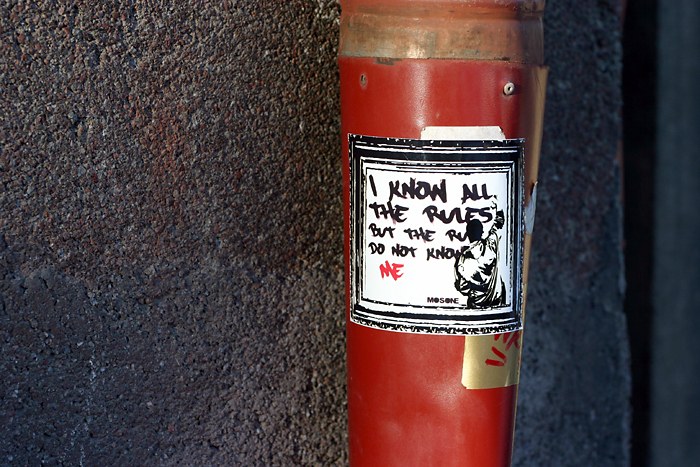 I KNOW ALL
THE RULES
BUT THE RU
DO NOT KNOW
ME
MOSONE